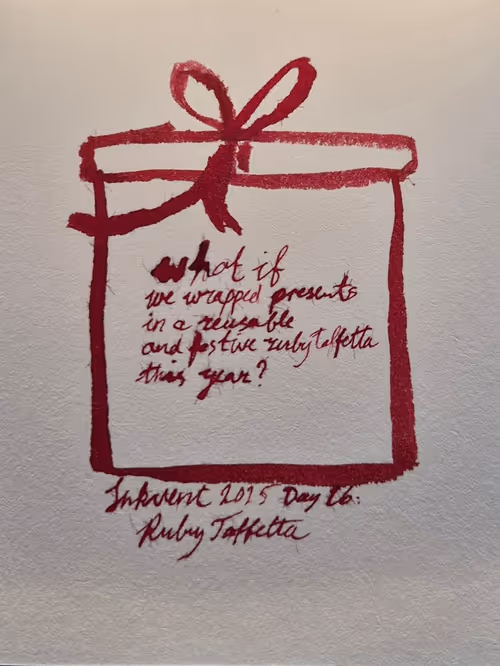 what if
we wrapped presents
in a reusable
and festive ruby taffetta
this year?
Inkvent 2025 Day 16:
Ruby Taffetta